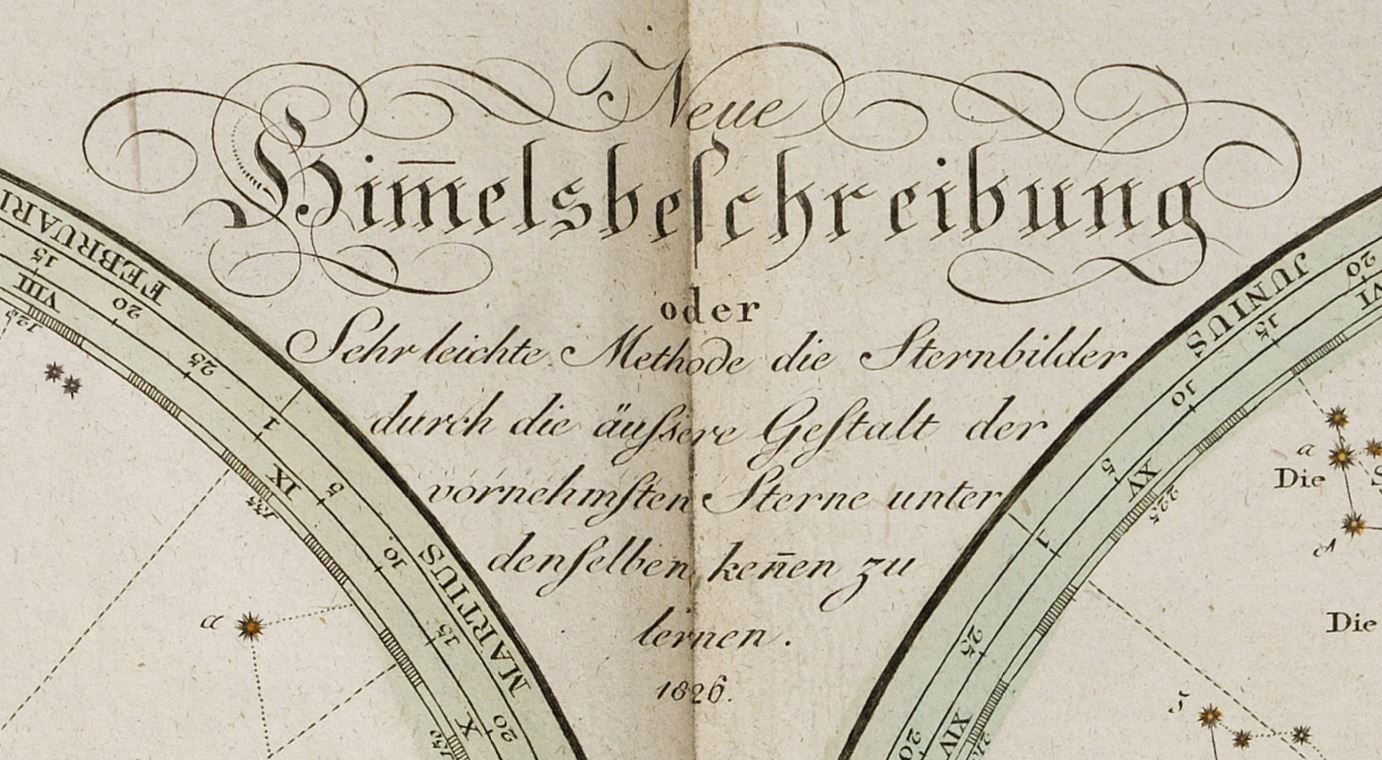 Neue
Him̄elsbeſchreibung
oder
Sehr leichte Methode die Sternbilder
durch die äuſsere Geſtalt der
vornehmſten Sterne unter
denſelben keñen zu
lernen.
1826.
FEBRUARI
15
20
25
1
5
10
15
20
MARTIUS
VIII
IX
X
125
135
150
α
JUNIUS
20
15
10
5
1
25
20
VI
XV
XIV
225
α
Die
δ
Die